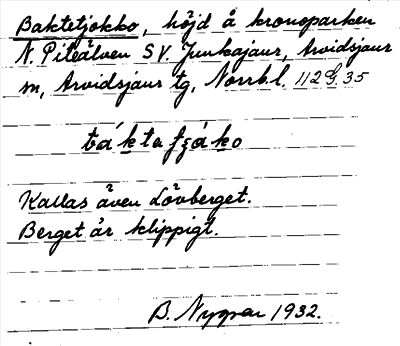 Baktetjokko, höjd å kronoparken
N. Piteälven SV. Junkajaur, Arvidsjaur
m, Arvidsjaur tg, Norrb.l. 112 G 35
Kallas även Lövberget.
Berget är klippigt.
B. Nygren 1932.